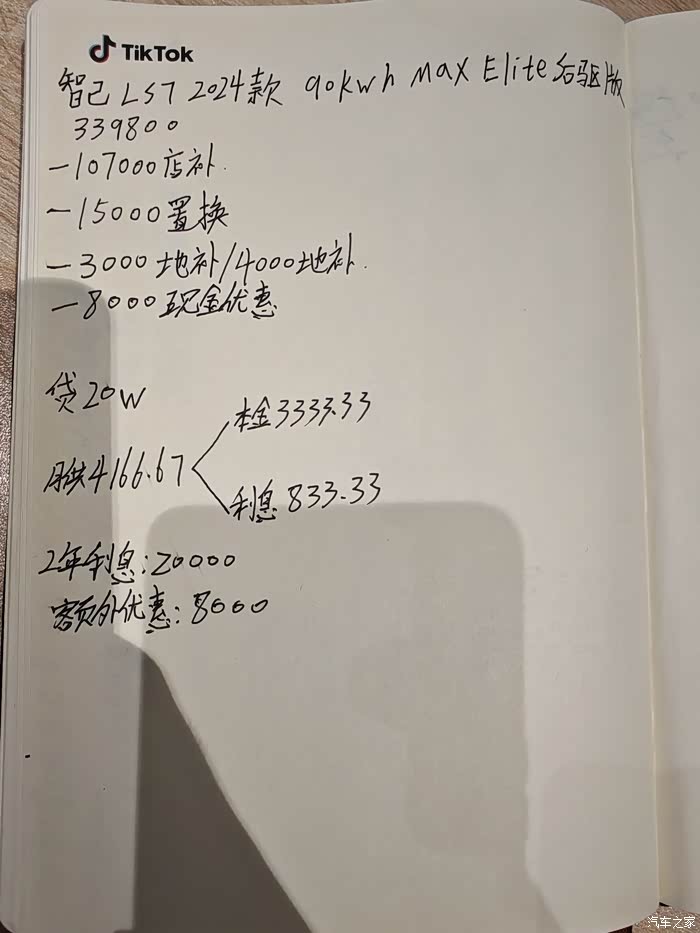 TikTok
智己 LS7 2024款 90kwh Max Elite后驱版
339800
-107000店补.
-15000置换
-3000地补/4000地补.
-8000现金优惠
贷20W
本金3333.33
月供4166.67
利息833.33
2年利息:20000
额外优惠:8000
汽车之家